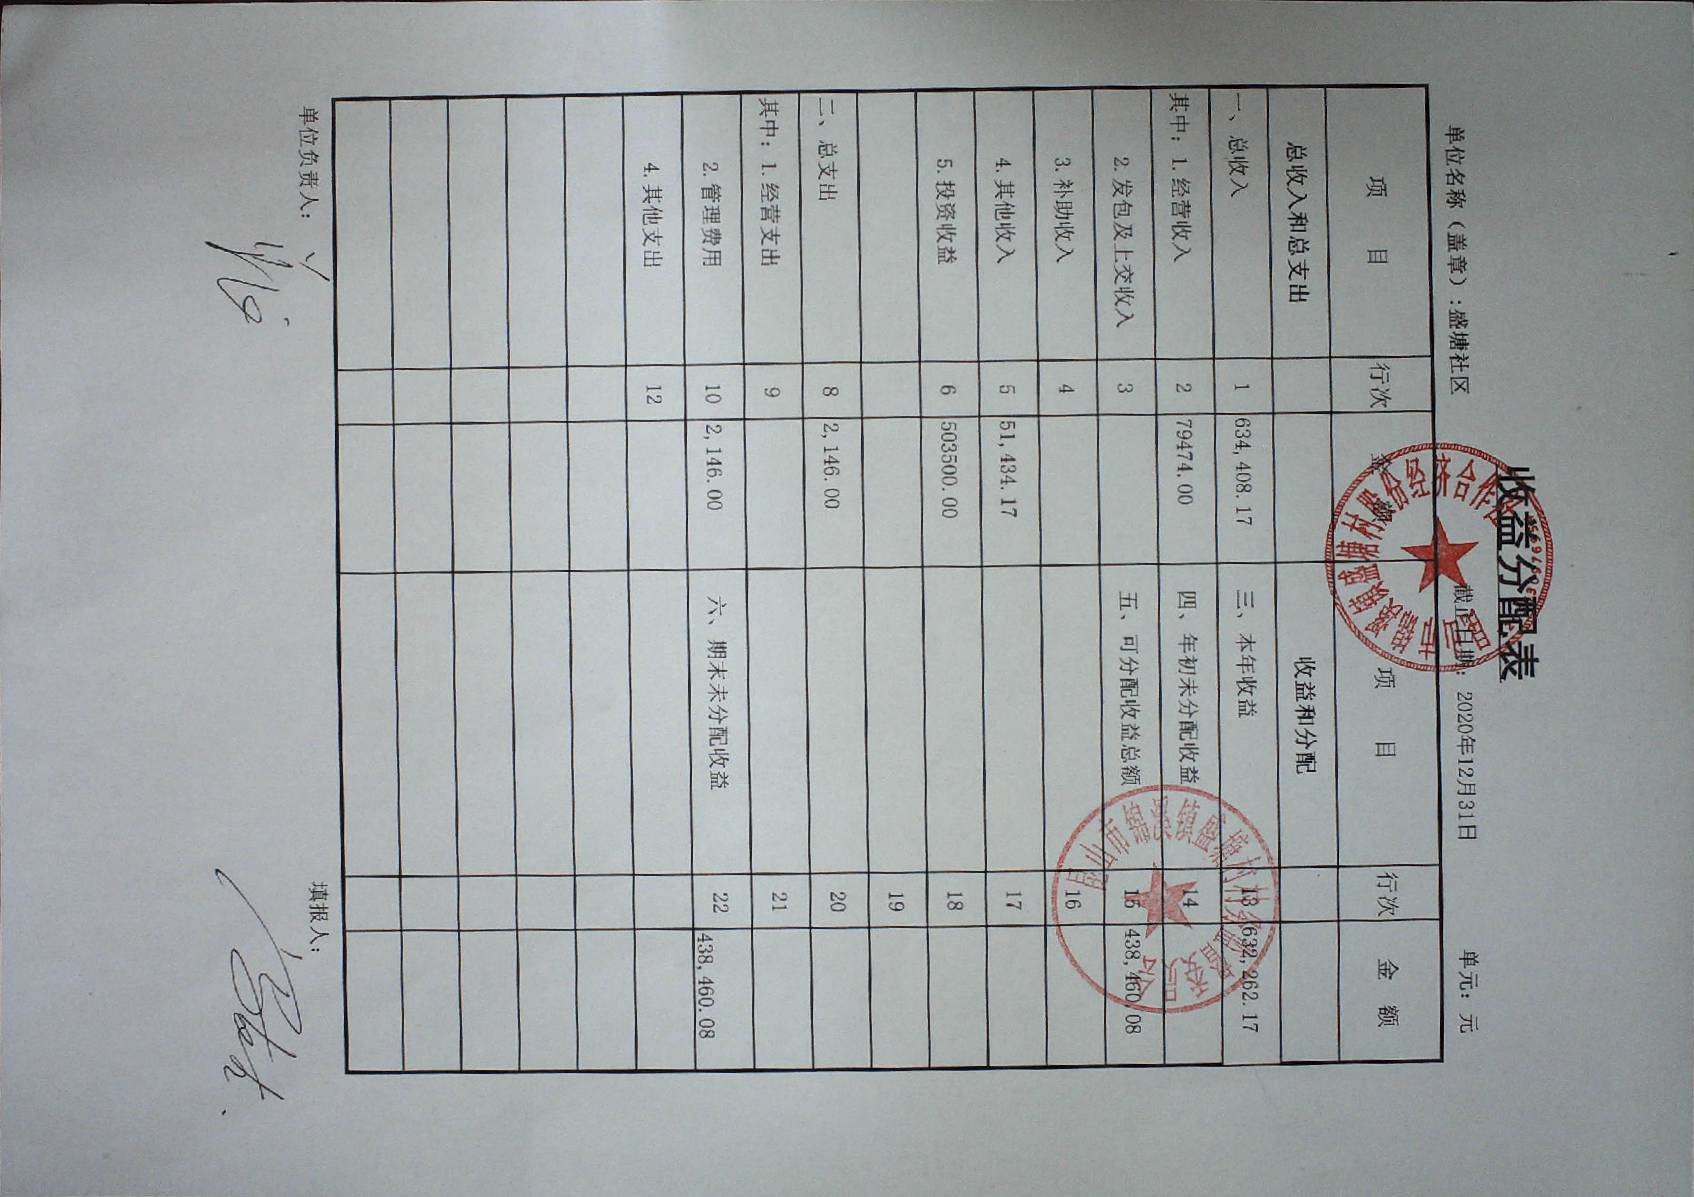 收益分配表
单位名称（盖章）:盛塘社区 截止日期: 2020年12月31日 单元: 元
项 目 行次 金 额 项 目 行次 金 额
总收入和总支出 收益和分配
一、总收入 1 634,408.17 三、本年收益 13 632,262.17
其中: 1.经营收入 2 79474.00 四、年初未分配收益 14
2.发包及上交收入 3 五、可分配收益总额 15 438,460.08
3.补助收入 4 16
4.其他收入 5 51,434.17 17
5.投资收益 6 503500.00 18
19
二、总支出 8 2,146.00 20
其中: 1.经营支出 9 21
2.管理费用 10 2,146.00 六、期末未分配收益 22 438,460.08
4.其他支出 12
单位负责人: 填报人: